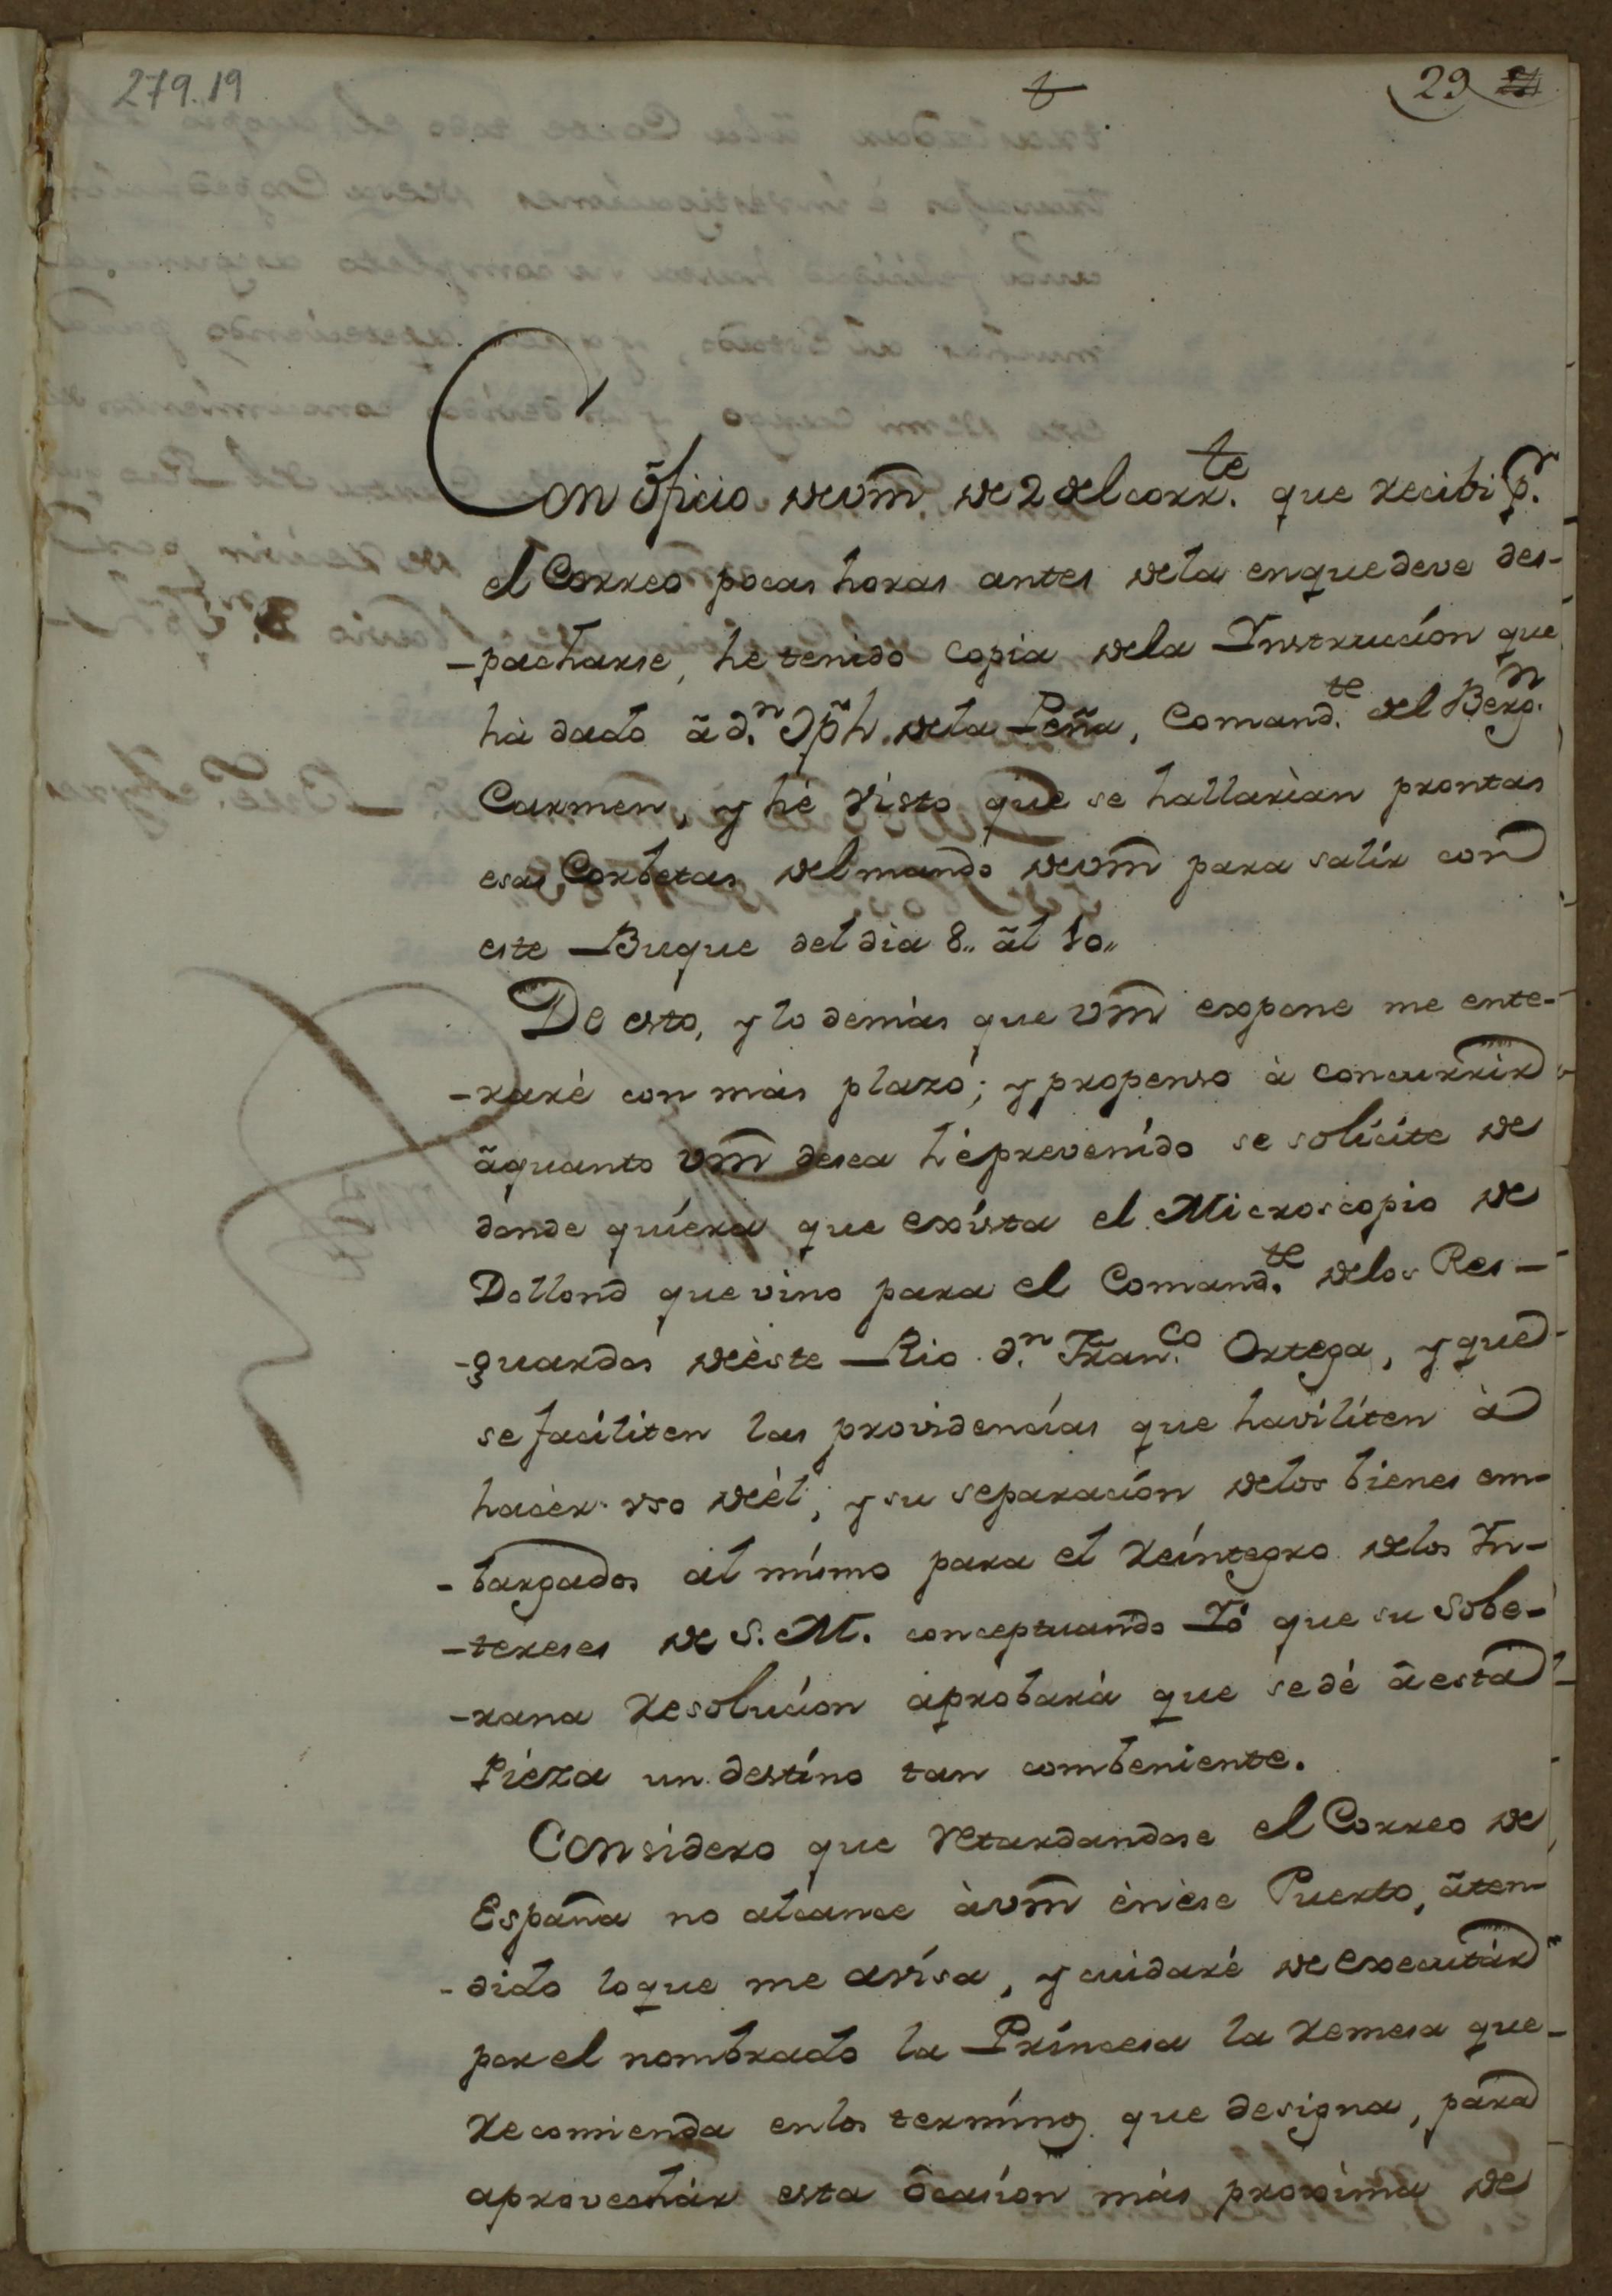 279.19
29
Con õficio de vm̃ de 2 del corr.te que recibi p.r
el Correo pocas horas antes de la en que deve des-
-pacharse, he tenido copia de la Instrucción que
hà dado ã d.n Jph̃. de la Peña, Comand.te del Berg.n
Carmen, y hè visto que se hallarìan prontas
esas Corbetas del mando de vm̃ para salír con
este Buque del dia 8,, ãl 10,,
De esto, y lo demàs que vm̃ expone me ente-
-rarè con màs plazo; y propenso à concurrìr
ã quanto vm̃ desea hè prevenído se solícite de
donde quíera que exísta el Microscopio de
Dollond que vino para el Comand.te de los Res-
-guardos de èste Rio d.n Fran.co Ortega, y que
se facíliten las providencías que havilíten à
hacèr vso de èl, y su separacíon de los bienes em-
-bargados al mísmo para el reíntegro de los In-
-tereses de S. M. conceptuando Yó que su Sobe-
-rana resolucíon aprobarà que se dé à esta
Píeza un destíno tan combeniente.
Considero que retardandose el Correo de
España no alcance à vm̃ èn èse Puerto, ãten-
-dido lo que me avísa, y cuidaré de executàr
por el nombrado la Príncesa la remesa que
recomienda en los termínos que designa, para
aprovechàr esta ôcasíon más proxíma de